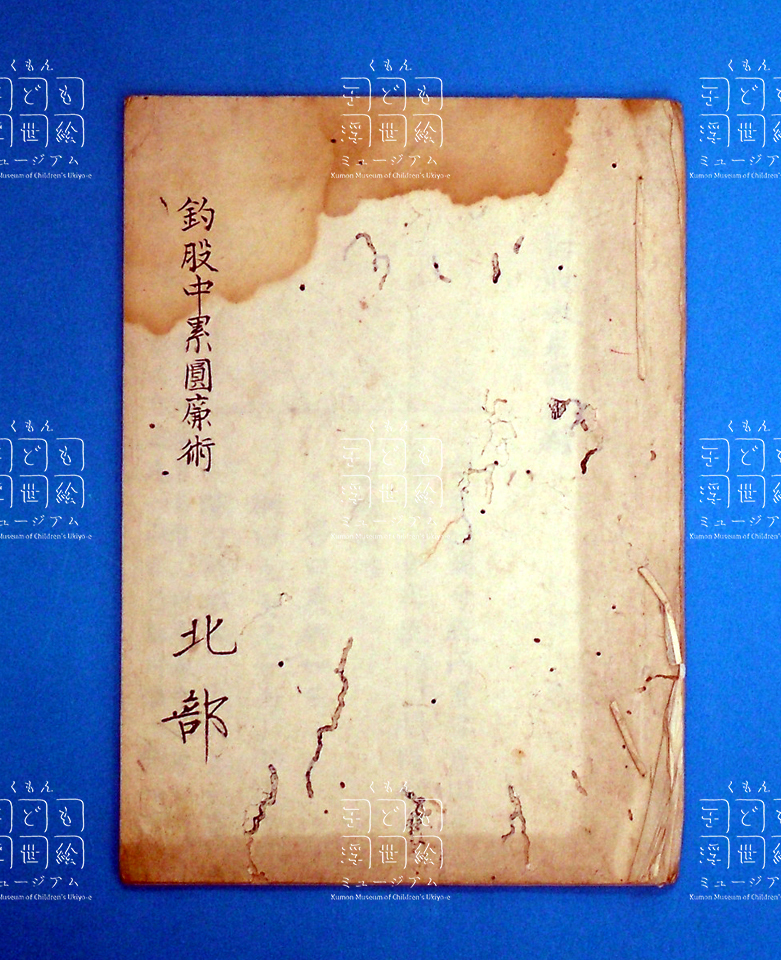 釣股中累圓廉術
北部
くもん
子ども
浮世絵
ミュージアム
Kumon Museum of Children's Ukiyo-e